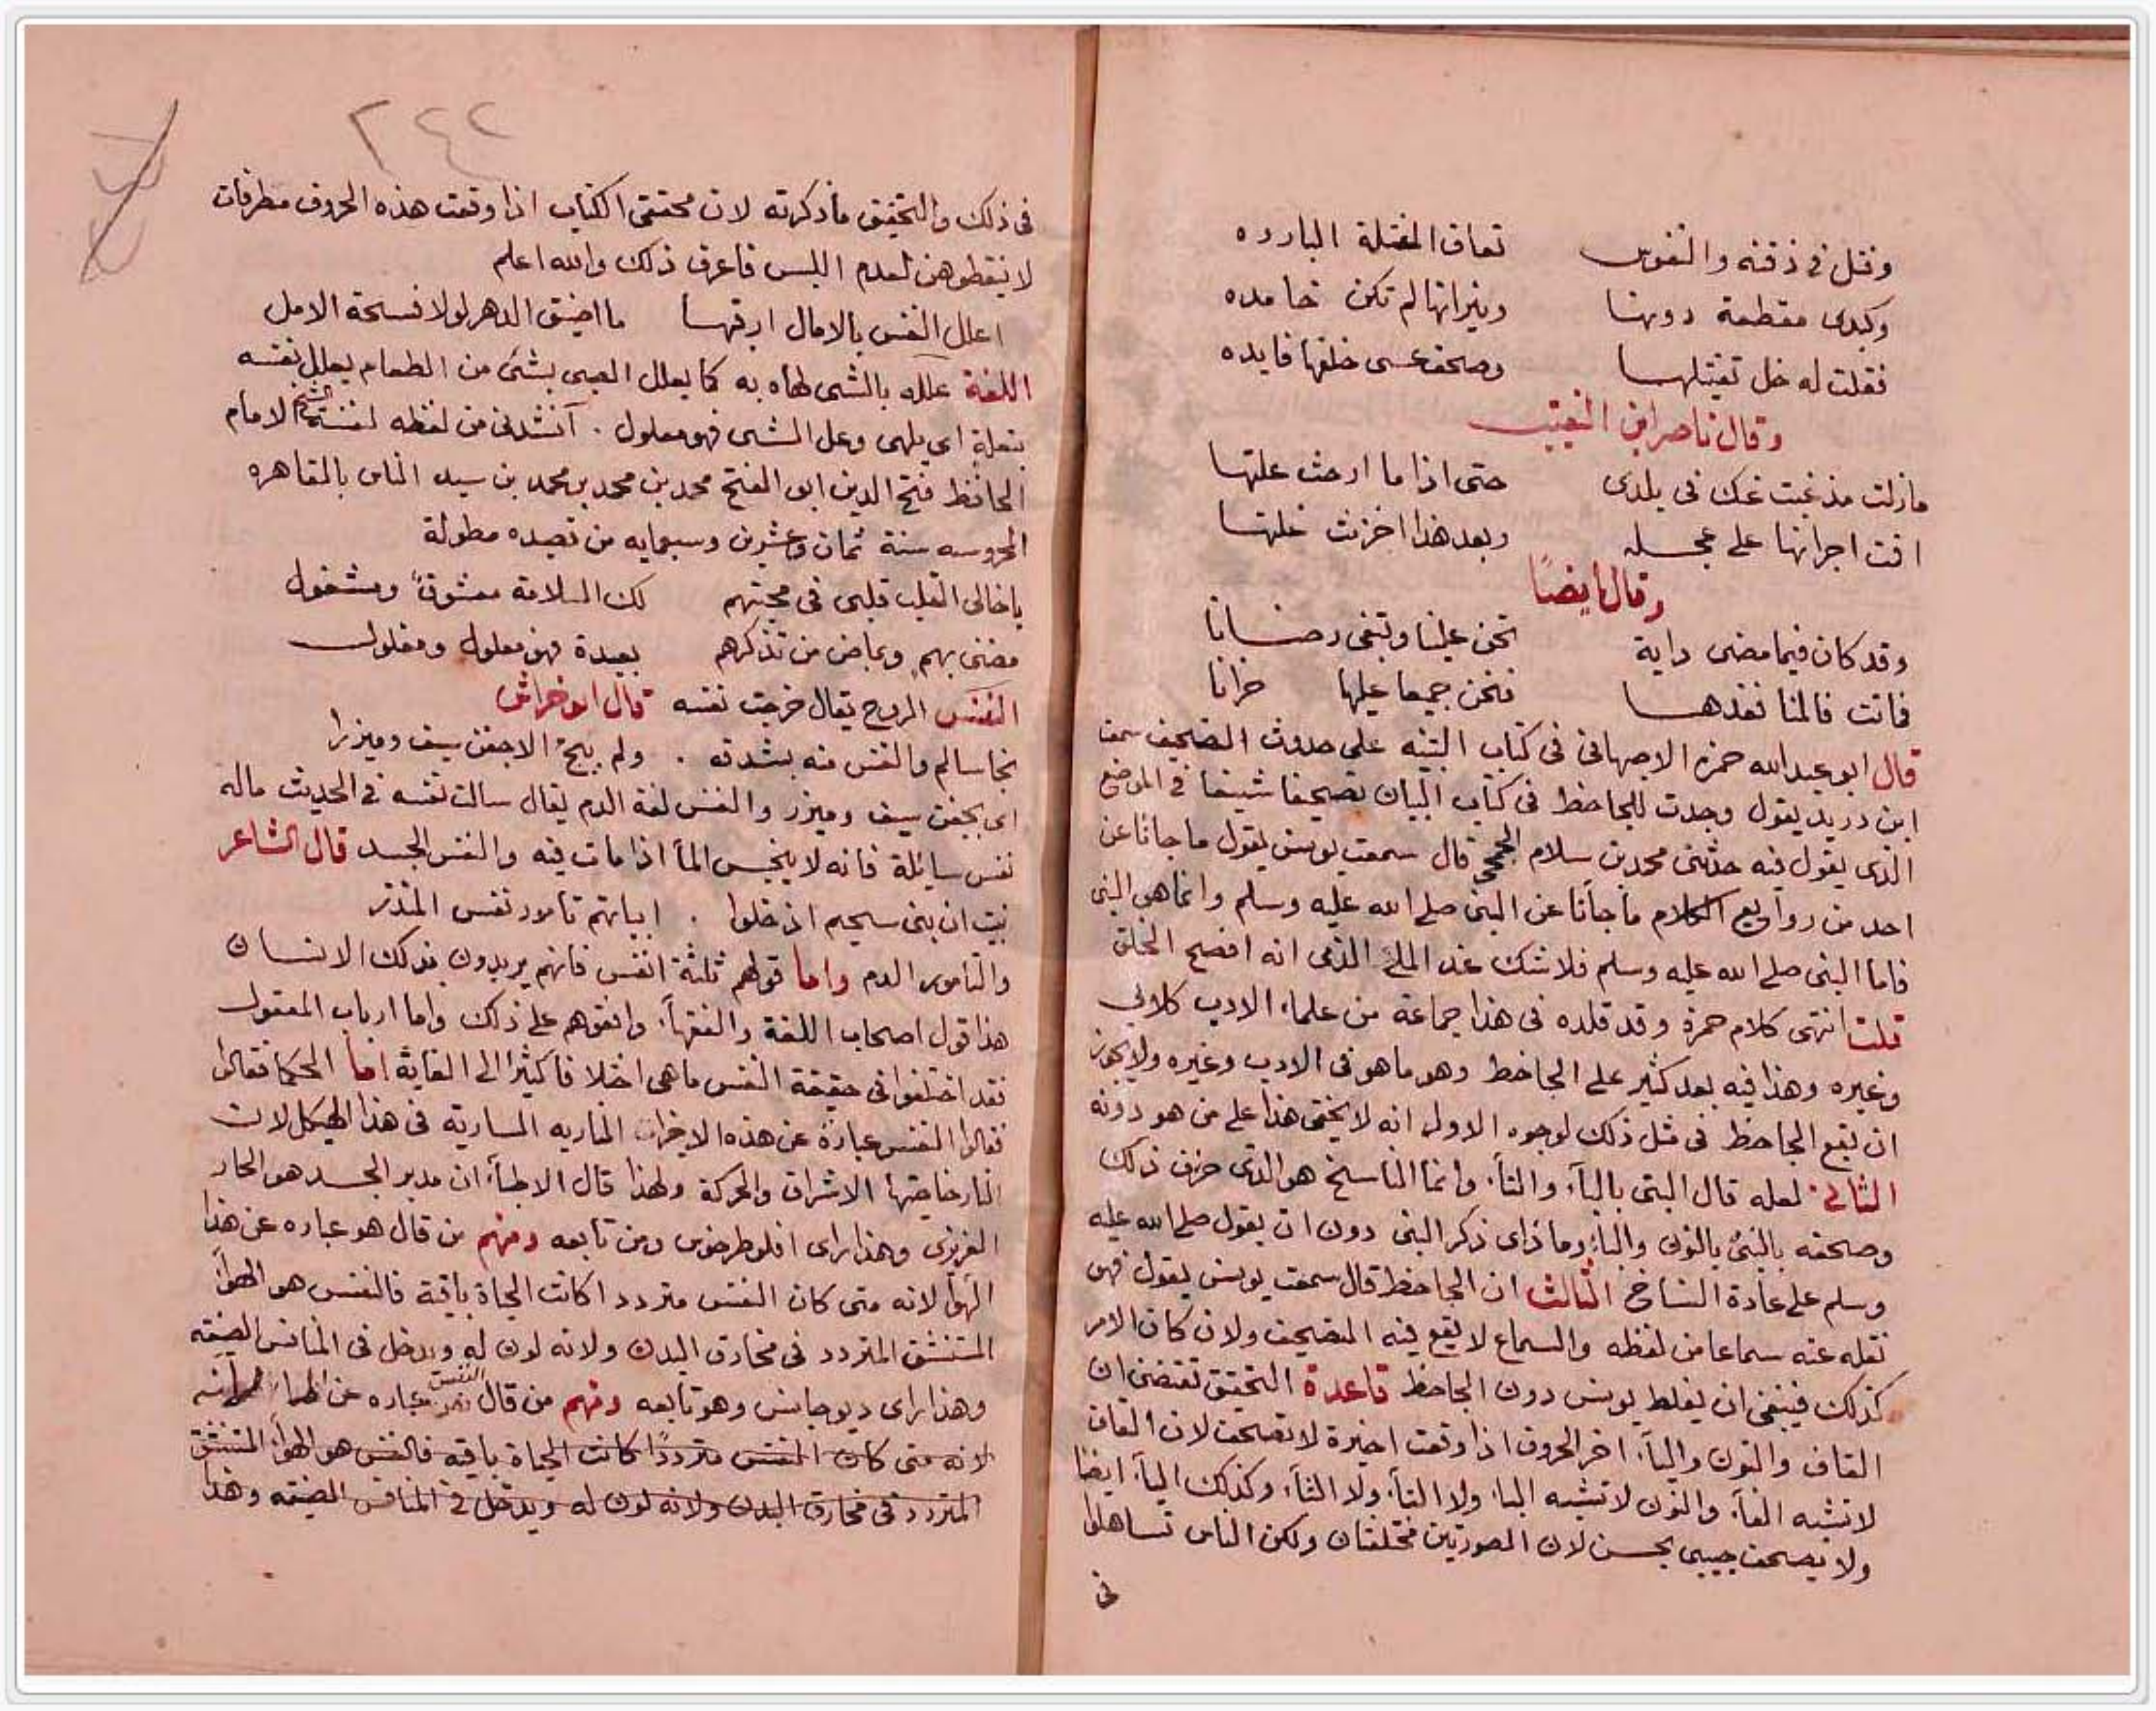 وفتل في ذقنه والنفوس تعاف الفتلة البارده
وكبدى مقطعة دونها ونيرانها لم تكن خامده
فقلت له خل تفتيلها وصحف عسى خلفها فايده
وقال ناصر ابن النقيب
مازلت مذ غبت عنك في بلدى حتى اذا ما ارحت علتها
اقت اجرانها على عجله وبعد هذا اخزنت غلتها
وقال ايضا
وقد كان فيما مضى داية تحن علينا وتبغى رضانا
فاتت فالمنا فقدها فنحن جميعا عليها حزانا
قال ابو عبد الله حمزه الاصبهاني في كتاب التنبه على حدوث التصحيف سمعت
ابن دريد يقول وجدت للجاحظ في كتاب البيان تصحيفا شنيعا في الموضع
الذى يقول فيه حدثنى محمد بن سلام الجمحى قال سمعت يونس يقول ما جانا عن
احد من روايع الكلام ما جانا عن النبى صلى الله عليه وسلم وانما هو البتى
فاما النبى صلى الله عليه وسلم فلا شك عند الملئ الذمى انه افصح الخلق
قلت انتهى كلام حمزة وقد قلده في هذا جماعة من علماء الادب كلابى
وغيره وهذا فيه بعد كثير على الجاحظ وهو ما هو في الادب وغيره ولا يجوز
ان يقع الجاحظ في مثل ذلك لوجوه الاول انه لا يخفى هذا على من هو دونه
الثانى لعله قال البتى بالباء والتاء وانما الناسخ هو الذى حرف ذلك
وصحفه بالنبى بالنون والباء وما ذاى ذكر النبى دون ان يقول صلى الله عليه
وسلم على عادة النساخ الثالث ان الجاحظ قال سمعت يونس يقول فهو
نقله عنه سماعا من لفظه والسماع لا يقع فيه التصحيف ولان كان الامر
كذلك فينبغى ان يغلط يونس دون الجاحظ قاعدة التحقيق تقتضى ان
القاف والنون والياء اخر الحروف اذا وقعت اخيرة لا تصحف لان القاف
لا تشبه الفاء والنون لا تشبه الباء ولا التاء ولا الثاء وكذلك الياء ايضا
ولا يصحف حبيبى بحسن لان الصورتين مختلفتان ولكن الناس تساهلوا
في
٢٤٢
في ذلك والتحقيق ما ذكرته لان محققى الكتاب اذا وقعت هذه الحروف مطرفات
لا ينقطوهن لعدم اللبس فاعرف ذلك والله اعلم
اعلل النفس بالامال ارقبها ما اضيق الدهر لولا فسحة الامل
اللغة علله بالشى لهاه به كما يعلل الصبى بشئ من الطعام يعلل نفسه
بتعلة اى يلهى وعل الشى فهو معلول . انشدنى من لفظه لنفسه الشيخ الامام
الحافظ فتح الدين ابو الفتح محمد بن محمد بن محمد بن سيد الناس بالقاهره
المحروسه سنة ثمان وعشرين وسبعمايه من قصيده مطولة
يا خالى القلب قلبى في محبتهم لك السلامة معشوق ومشغول
مضنى بهم وبماض من تذكرهم بعيدة فهو معلول ومغلول
النفس الروح يقال خرجت نفسه قال ابو خراش
نجا سالم والنفس منه بشدقه . ولم ينج الا جفن سيف وميزرا
اى بجفن سيف وميزر والنفس لغة الدم يقال سالت نفسه في الحديث ماله
نفس سايلة فانه لا ينجس الماء اذا مات فيه والنفس الجسد قال الشاعر
نبيت ان بنى سحيم ادخلوا . ابياتهم تامور نفس المنذر
والتامور الدم واما قولهم ثلثة انفس فانهم يريدون بذلك الانسان
هذا قول اصحاب اللغة والفقهاء وانقوهم على ذلك واما ارباب المعقول
فقد اختلفوا في حقيقة النفس ما هى اختلافا كثيرا الى الغاية اما الحكما فقالوا
فقالوا النفس عبارة عن هذه الاجزاء الناريه السارية في هذا الهيكل لان
النار خاصتها الاشراق والحركة ولهذا قال الاطباء ان مدبر الجسد هو الحار
الغريزى وهذا راى افلوطرخوس ومن تابعه ومنهم من قال هو عباره عن هذا
الهواء لانه متى كان النفس مترددا كانت الحياة باقية فالنفس هو الهواء
المستنشق المتردد في مخارق البدن ولانه لون له ويدخل في المنافس الضيقه
وهذا راى ديوجانس وهو تابعه ومنهم من قال النفس عباره عن الماء
لانه متى كان النفس مترددا كانت الحياة باقيه فالنفس هو الهواء المستنشق
المتردد في مخارق البدن ولانه لون له ويدخل في المنافس الضيقه وهذا